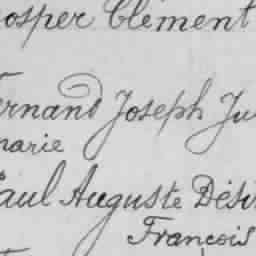 osper Clément
ernand Joseph Ju
marie
Paul Auguste Dési
François